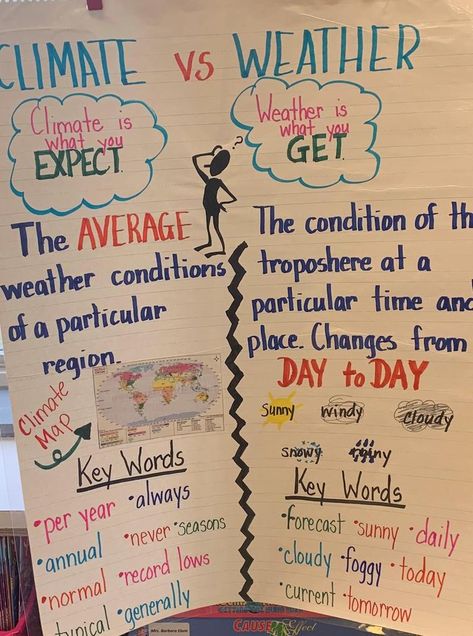 CLIMATE vs WEATHER
Climate is
what you
EXPECT.
Weather is
what you
GET.
The AVERAGE
weather conditions
of a particular
region.
Climate
Map
Key Words
•per year •always
•annual •never •seasons
•normal •record lows
typical •generally
The condition of th
troposhere at a
particular time and
place. Changes from
DAY to DAY
Sunny windy cloudy
snowy rainy
Key Words
•forecast •sunny •daily
•cloudy •foggy •today
•current •tomorrow
CAUSE Effect